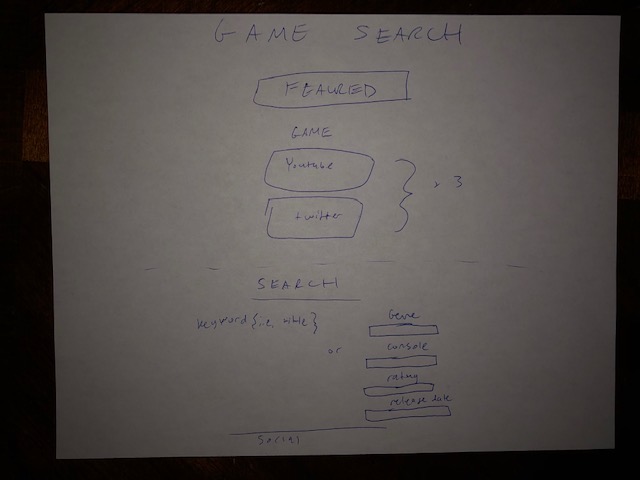 GAME SEARCH
FEAURED
GAME
Youtube
x 3
twitter
SEARCH
keyword {i.e. title}
or
Genre
console
rating
release date
Social